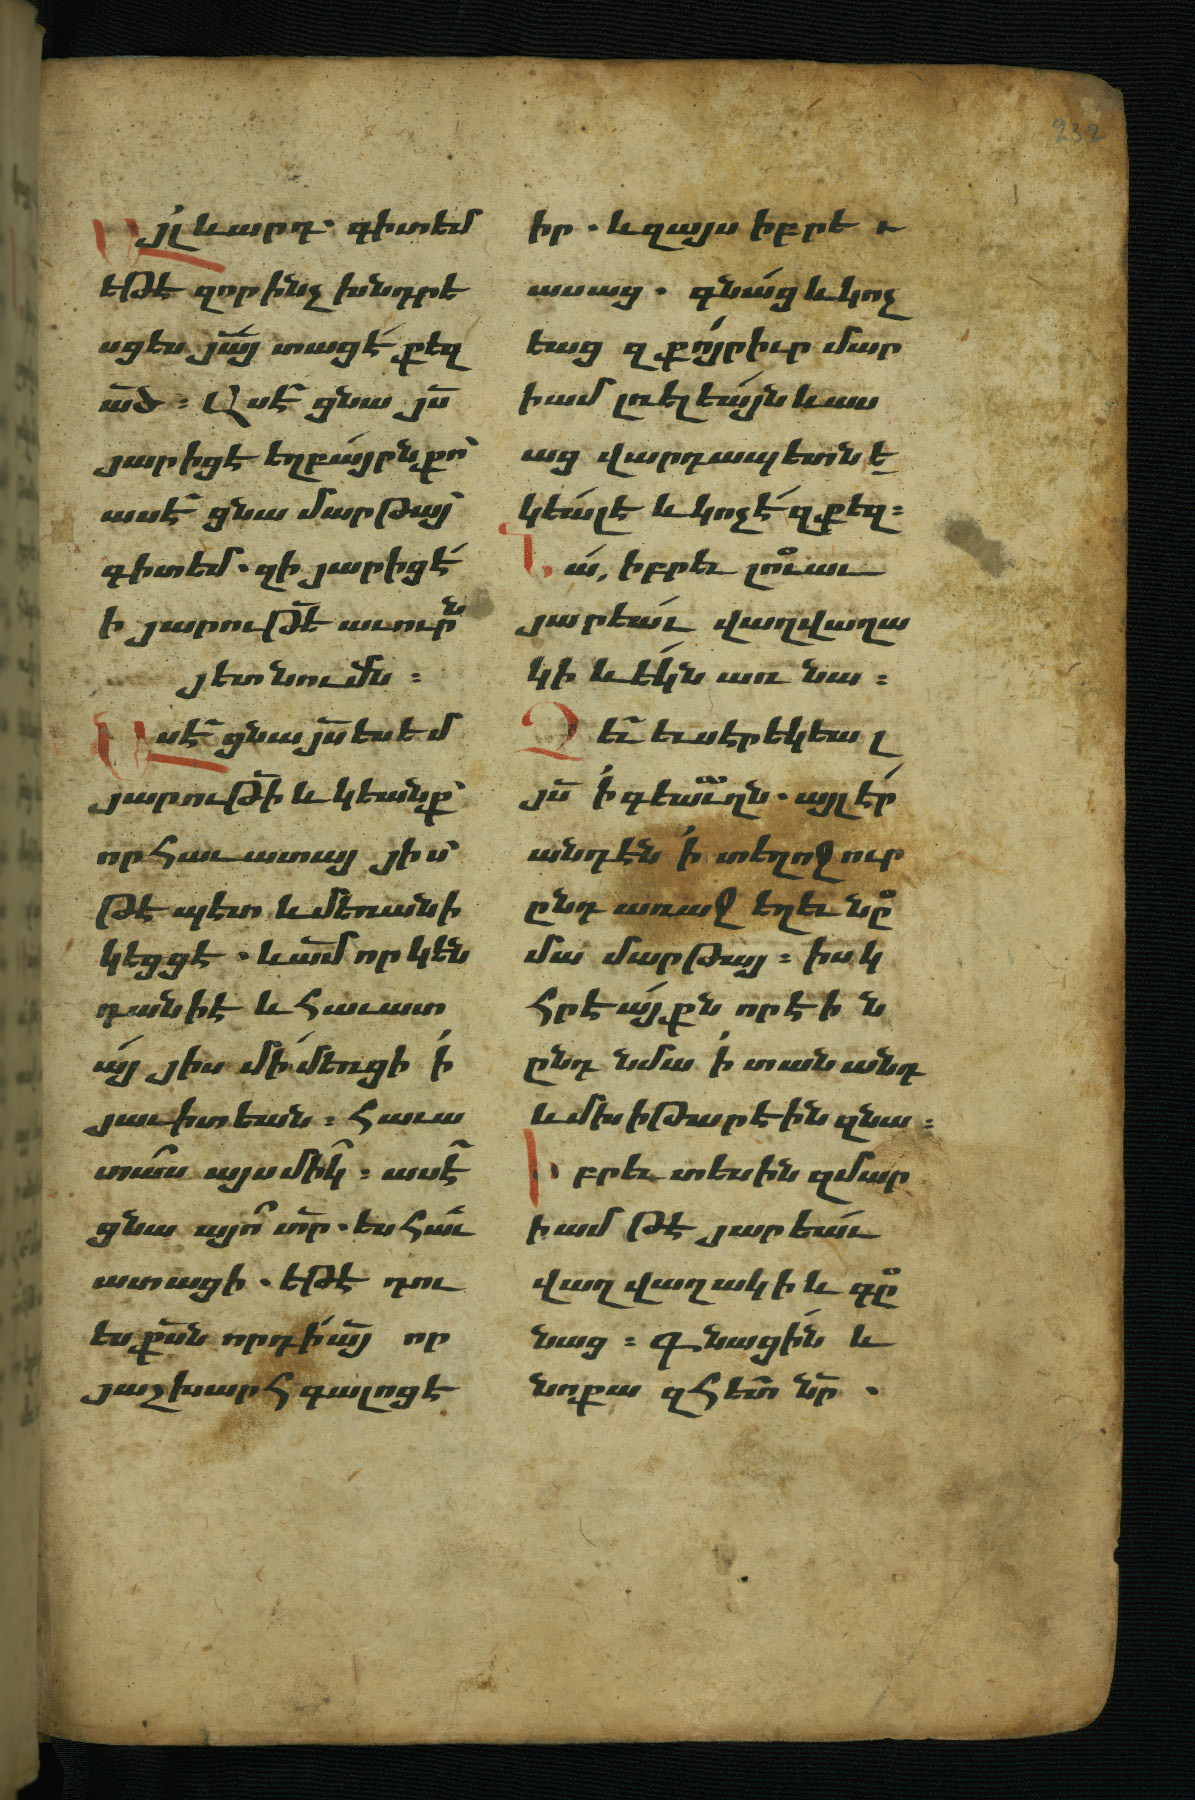 232
Այլ և արդ. գիտեմ
եթէ զոր ինչ խնդրե
սցես յա՟յ տացէ քեզ
ա՟ծ ։ Ասէ ցնա յ՟ս
յարիցէ եղբայրն քո՛
ասէ ցնա մարթայ՛
գիտեմ. զի յարիցէ
ի յարութե՟ աւուր՟ն
յետնումն ։
Ասէ ցնա յ՟ս ես եմ
յարութի՟ և կեանք՛
որ հաւատայ յիս՛
թէ պէտ և մեռանի
կեցցէ . և ամ՟ որ կեն
դանի է և հաւատ
այ յիս մի մեռցի ի՛
յաւիտեան ։ հաւա
տա՞ս այսմիկ ։ ասէ
ցնա այո՛ տ՟ր . ես հաւ
ատացի . եթէ դու
ես ք՟ս որդի ա՟յ որ
յաշխարհ գալոց է
իր . և զայս իբրե ւ
ասաց . գնաց և կոչ
եաց զքոյր իւր մար
իամ լռելեայն և աս
աց վարդապետն ե
կեալ է և կոչէ զքեզ ։
Նա, իբրեւ լուաւ
յարեաւ վաղվաղա
կի և եկն առ նա ։
Զեւ եւս էր եկեալ
յ՟ս ի գեաւղն . այլ էր
անդէն ի տեղոջ ուր
ընդ առաջ եղեւ նը
մա մարթայ ։ իսկ
հրէայքն որ էի ն
ընդ նմա ի տան անդ
և մխիթարէին զնա ։
Իբրեւ տեսին զմար
իամ թէ յարեաւ
վաղվաղակի և գը
նաց ։ Գնացին և
նոքա զհետ ն՟ր .